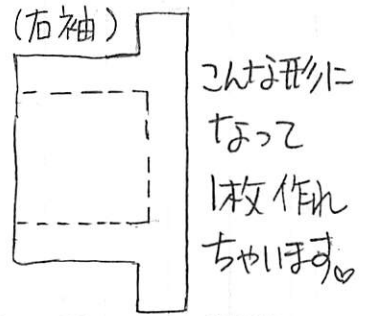 (右袖)
こんな形に
なって
1枚作れ
ちゃいます♡